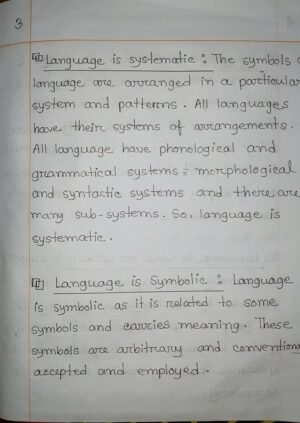 3
Language is systematic : The symbols
language are arranged in a particular
system and patterns. All languages
have their systems of arrangements.
All language have phonological and
grammatical systems : morphological
and syntactic systems and there are
many sub-systems. So, language is
systematic.
Language is Symbolic : Language
is symbolic as it is related to some
symbols and carries meaning. These
symbols are arbitrary and convention
accepted and employed.